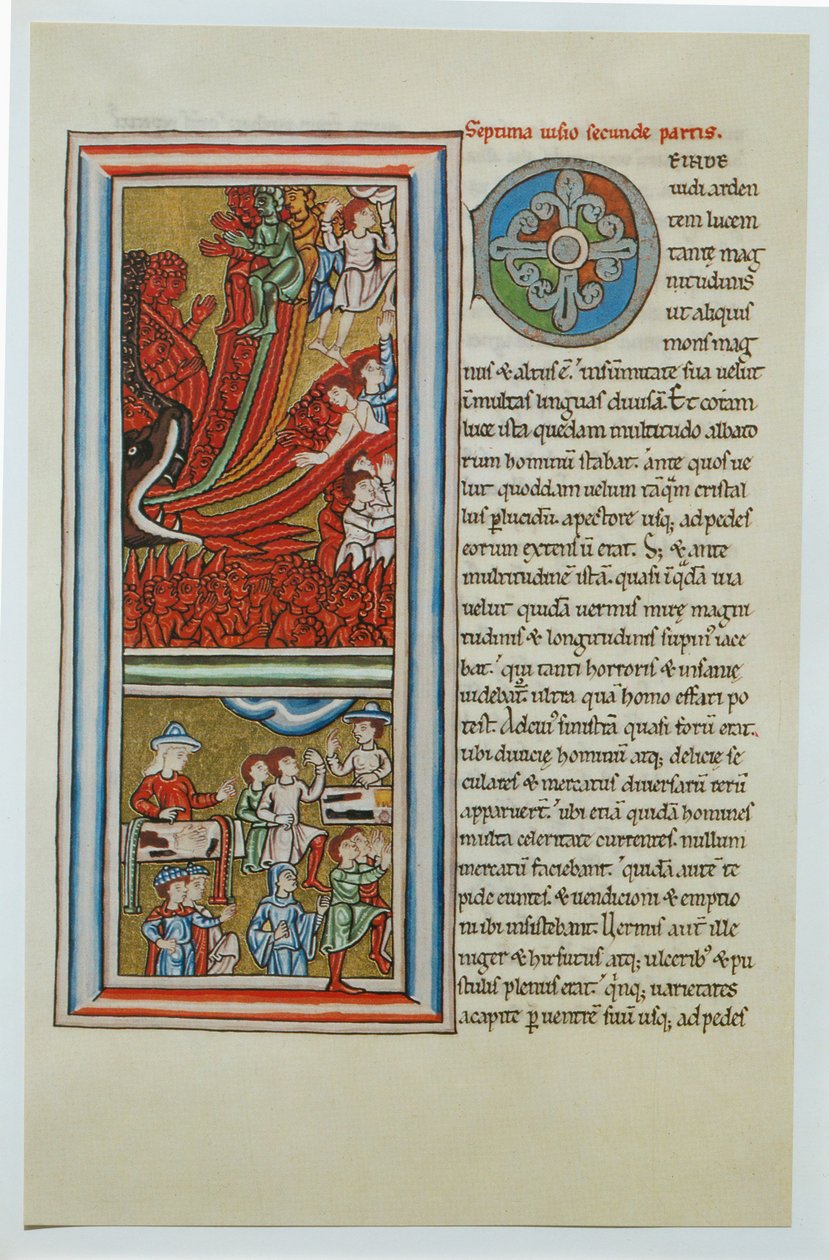 Septima uisio secunde partis.
DEINDE
uidi arden
tem lucem
tantę mag
nitudinis
ut aliquis
mons mag
nus & altus ē. in sūmitate sua uelut
in multas linguas diuisā. Et coram
luce ista quedam multitudo albato
rum hominū stabat. ante quos ue
lut quoddam uelum tāqm cristal
lus plucidū. a pectore usq; ad pedes
eorum extensū erat. S; & ante
multitudinē istā. quasi ī qdā uia
uelut quidā uermis mirę magni
tudinis & longitudinis supin' iace
bat. qui tanti horroris & insanię
uidebat. ultra quā homo effari po
test. Ad cui' sinistrā quasi forū erat.
ubi diuicię hominū atq; delicię se
culares & mercatus diuersarū rerū
apparuert. ubi etiā quidā homines
multa celeritate currentes. nullum
mercatū faciebant. quidā autē te
pide euntes. & uendicioni & emptio
ni ibi insistebant. Uermis aut ille
niger & hirsutus atq; ulcerib' & pu
stulis plenus erat. qnq; uarietates
a capite p uentrē suū usq; ad pedes